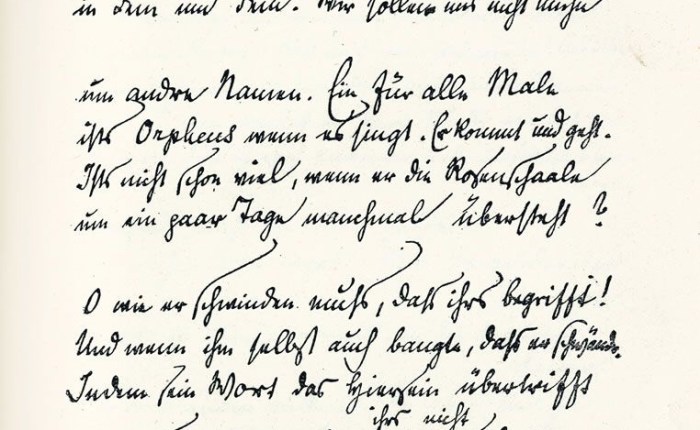 in dem und dem. Wir sollen uns nicht mühn
um andre Namen. Ein für alle Male
ists Orpheus wenn es singt. Er kommt und geht.
Ists nicht schon viel, wenn er die Rosenschaale
um ein paar Tage manchmal übersteht?
O wie er schwinden muss, dass ihrs begrifft!
Und wenn ihm selbst auch bangte, dass er schwände.
Indem sein Wort das Hiersein übertrifft
ihrs nicht